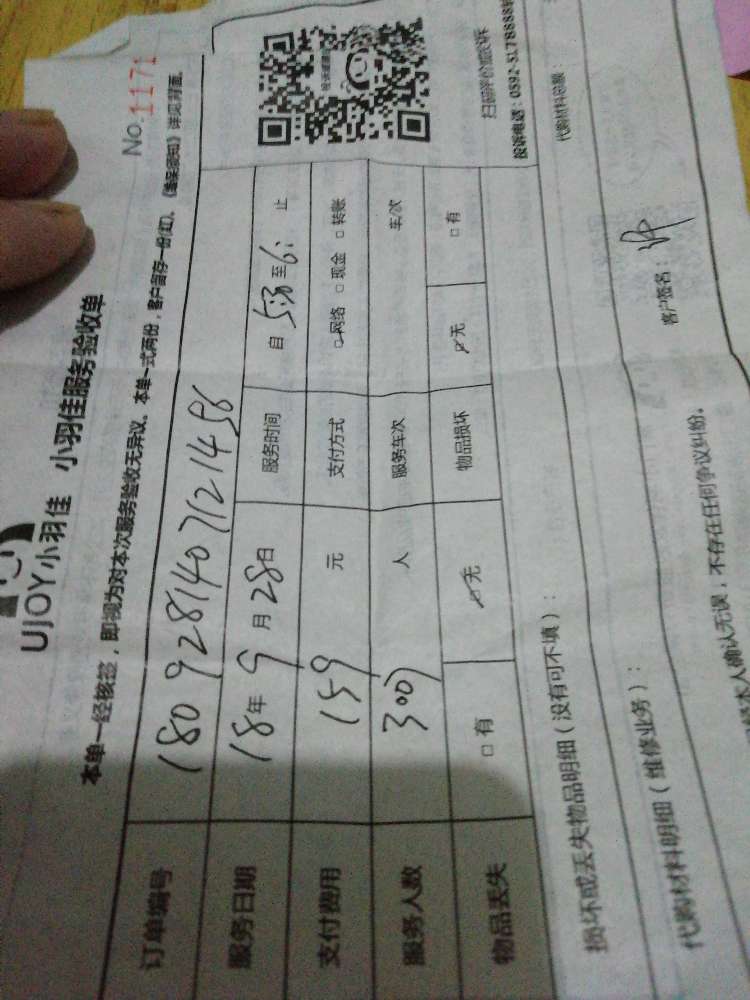 UJOY小羽佳 小羽佳服务验收单
No.1171
本单一经核签，即视为对本次服务验收无异议。本单一式两份，客户留存一份(红)。《维保须知》详见背面。
订单编号 1809281407121456
服务日期 18年9月28日 服务时间 自5:30至6: 止
支付费用 159元 支付方式 □网络 □现金 □转账
服务人数 人 服务车次 车/次
物品丢失 □有 □无 物品损坏 □无 □有
扫码评价或投诉
投诉电话：0592-5178888转
损坏或丢失物品明细（没有可不填）：
代购材料明细（维修业务）： 代购材料总额：
经本人确认无误，不存在任何争议纠纷。 客户签名：